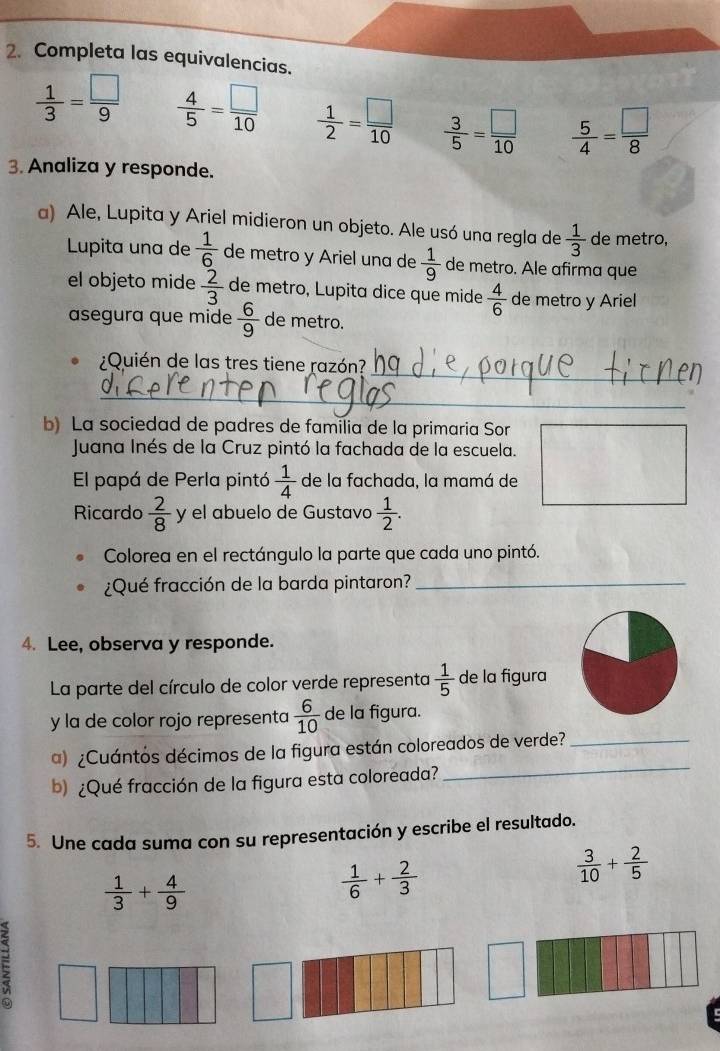 2. Completa las equivalencias.
1/3 = □/9   4/5 = □/10   1/2 = □/10   3/5 = □/10   5/4 = □/8
3. Analiza y responde.
a) Ale, Lupita y Ariel midieron un objeto. Ale usó una regla de 1/3 de metro,
Lupita una de 1/6 de metro y Ariel una de 1/9 de metro. Ale afirma que
el objeto mide 2/3 de metro, Lupita dice que mide 4/6 de metro y Ariel
asegura que mide 6/9 de metro.
• ¿Quién de las tres tiene razón? nadie, porque tienen
diferenten reglas
b) La sociedad de padres de familia de la primaria Sor
Juana Inés de la Cruz pintó la fachada de la escuela.
El papá de Perla pintó 1/4 de la fachada, la mamá de
Ricardo 2/8 y el abuelo de Gustavo 1/2.
• Colorea en el rectángulo la parte que cada uno pintó.
• ¿Qué fracción de la barda pintaron?
4. Lee, observa y responde.
La parte del círculo de color verde representa 1/5 de la figura
y la de color rojo representa 6/10 de la figura.
a) ¿Cuántos décimos de la figura están coloreados de verde?
b) ¿Qué fracción de la figura esta coloreada?
5. Une cada suma con su representación y escribe el resultado.
1/3 + 4/9   1/6 + 2/3   3/10 + 2/5
© SANTILLANA